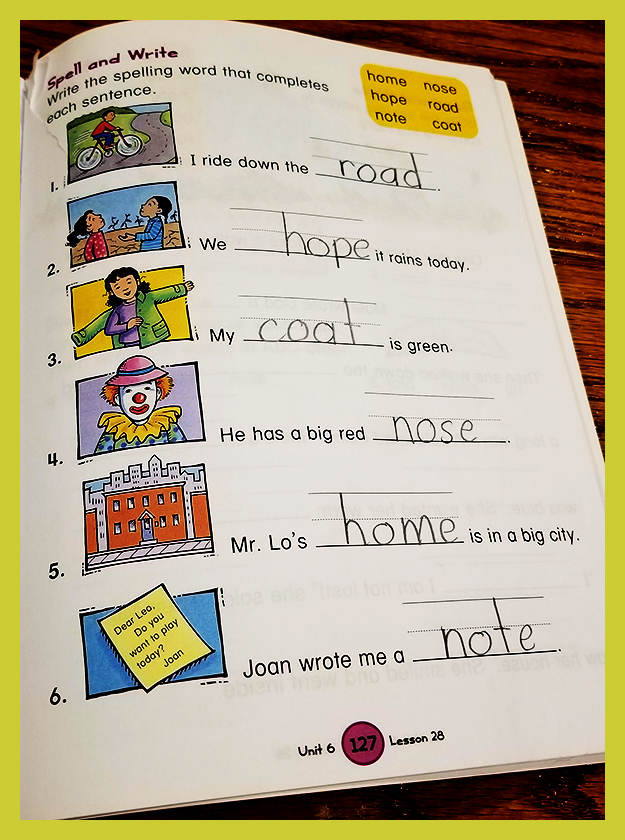 Spell and Write
Write the spelling word that completes
each sentence.
home nose
hope road
note coat
1. I ride down the road.
2. We hope it rains today.
3. My coat is green.
4. He has a big red nose.
5. Mr. Lo's home is in a big city.
Dear Leo,
Do you
want to play
today?
Joan
6. Joan wrote me a note.
Unit 6 127 Lesson 28